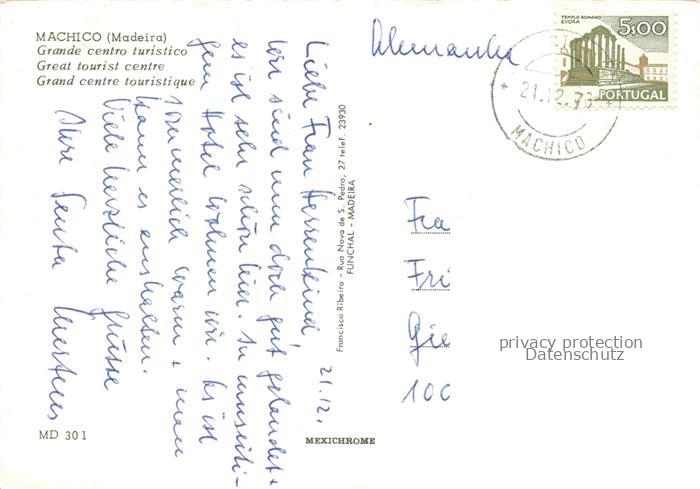 MACHICO (Madeira)
Grande centro turístico
Great tourist centre
Grand centre touristique
21.12.
Liebe Frau Herrenkind,
wir sind nun doch gut gelandet +
es ist sehr schön hier. In
gem Hotel wohnen wir. Es ist
sommerlich warm + man
kann es aushalten.
Viele herzliche Grüsse
Ihre Senta Mertens
MD 301
Francisco Ribeiro - Rua Nova de S. Pedro, 27 telef. 23930
FUNCHAL - MADEIRA
MEXICHROME
Alemanha
TEMPLO ROMANO
EVORA
5$00
PORTUGAL
21.12.73
MACHICO
Fra
Fri
Gie
100
privacy protection
Datenschutz